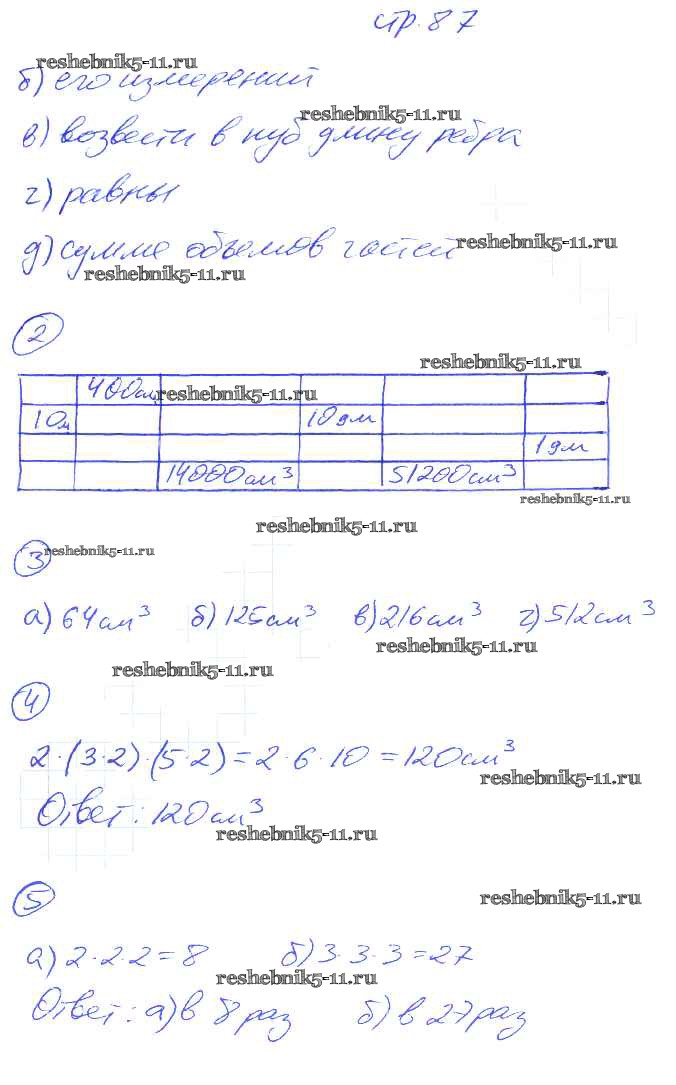 стр. 87
reshebnik5-11.ru
б) его измерений
reshebnik5-11.ru
в) возвести в куб длину ребра
г) равны
д) сумме объемов частей reshebnik5-11.ru
reshebnik5-11.ru
2
reshebnik5-11.ru
400см reshebnik5-11.ru
10м 10дм
1дм
14000см³ 51200см³
reshebnik5-11.ru
reshebnik5-11.ru
3 reshebnik5-11.ru
а) 64см³ б) 125см³ в) 216см³ г) 512см³
reshebnik5-11.ru
reshebnik5-11.ru
4
2·(3·2)·(5·2)=2·6·10=120см³
reshebnik5-11.ru
Ответ: 120см³
reshebnik5-11.ru
5 reshebnik5-11.ru
а) 2·2·2=8 б) 3·3·3=27
reshebnik5-11.ru
Ответ: а) в 8 раз б) в 27 раз